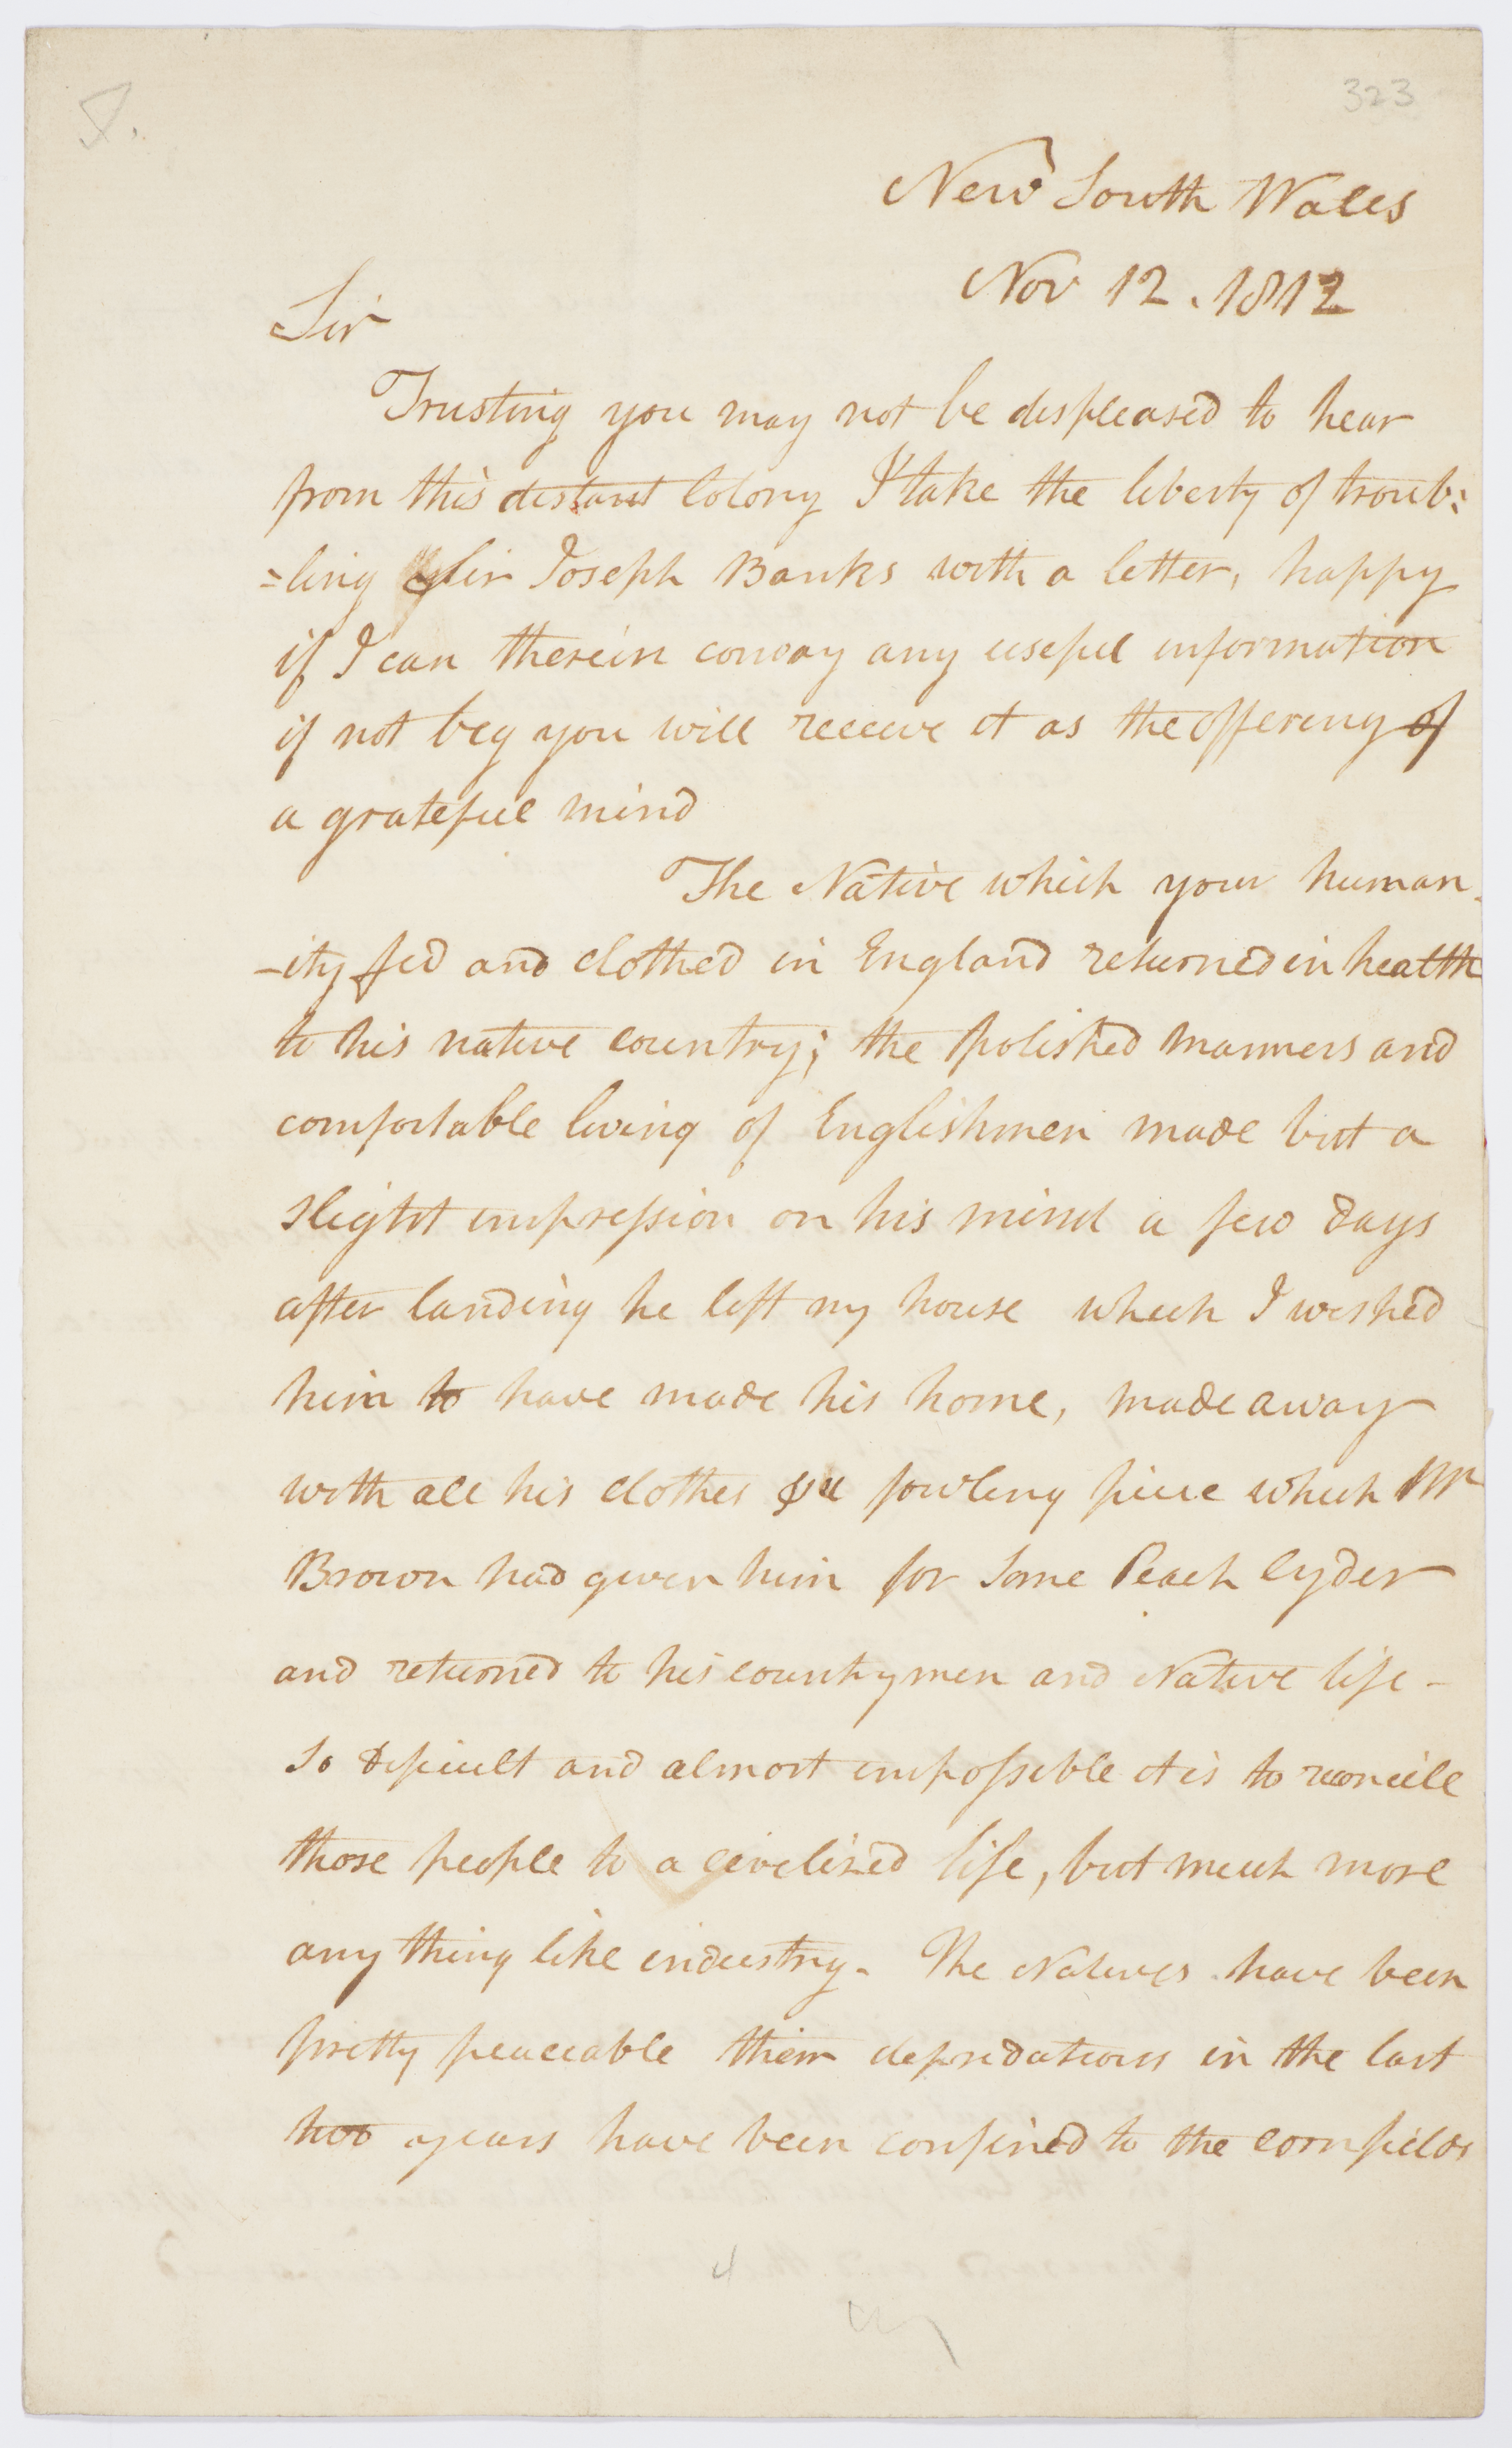 323
New South Wales
Nov 12. 1812
Sir
Trusting you may not be displeased to hear
from this distant Colony I take the liberty of troub:
=ling Sir Joseph Banks with a letter, happy
if I can therein convay any useful information
if not beg you will receive it as the offering of
a grateful mind
The Native which your human-
-ity fed and clothed in England returned in health
to his native country; the polished manners and
comfortable living of Englishmen made but a
slight impression on his mind a few days
after landing he left my house which I wished
him to have made his home, made away
with all his clothes & a fowling piece which Mr
Brown had given him for some Peach Cyder
and returned to his countrymen and Native life -
So dificult and almost impossible it is to reconcile
those people to a civelized life, but much more
any thing like industry. The Natives have been
pretty peaceable their depredations in the last
two years have been confined to the cornfields
4